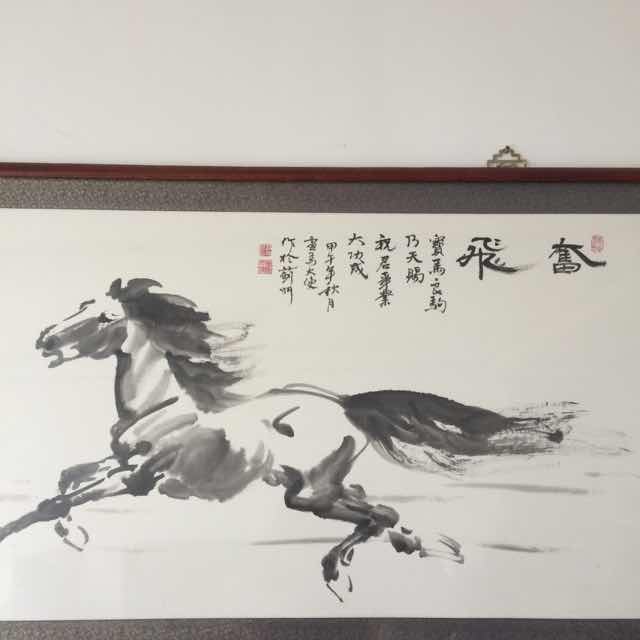 奮飛
寶馬名駒
乃天賜
祝君事業
大功成
甲午年秋月
馬大
作於州